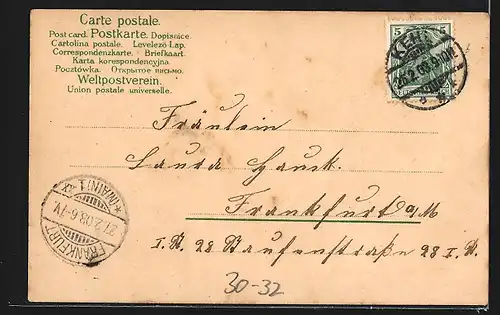 Carte postale.
Post card. Postkarte. Dopisnice.
Cartolina postale. Levelező Lap.
Correspondenzkarte. Briefkaart.
Karta korespondencyjna.
Pocztówka. Открытое письмо.
Weltpostverein.
Union postale universelle.
5 5
KEHL
Fräulein
Laura Hauck.
Frankfurt a/M
28 28
FRANKFURT (MAIN) 1
27.2.03.6-7V.
30-32